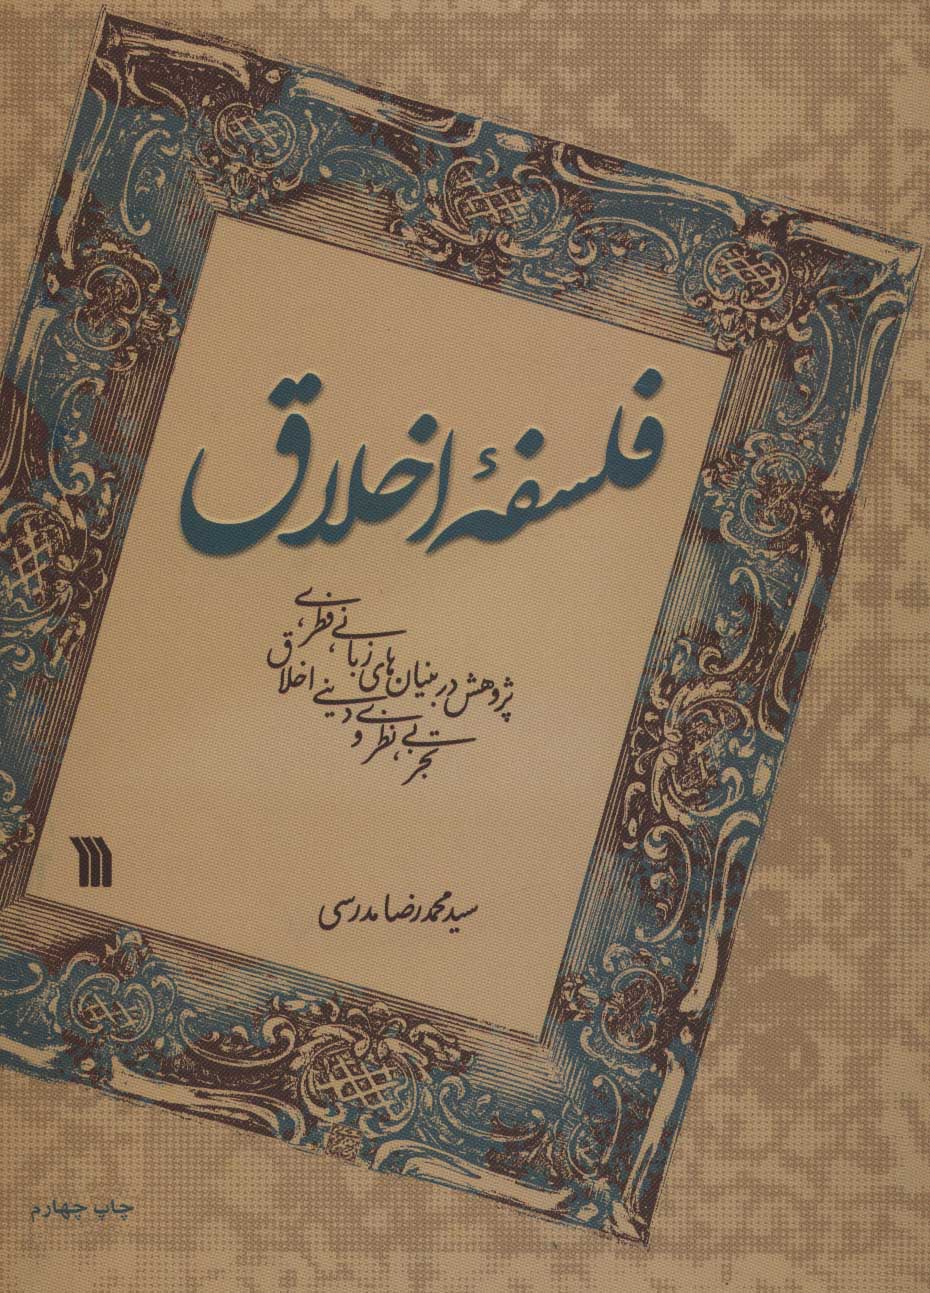 فلسفهٔ اخلاق
پژوهش در بنیان‌های زبانی، فطری،
تجربی، نظری و دینی اخلاق
سید محمدرضا مدرسی
چاپ چهارم